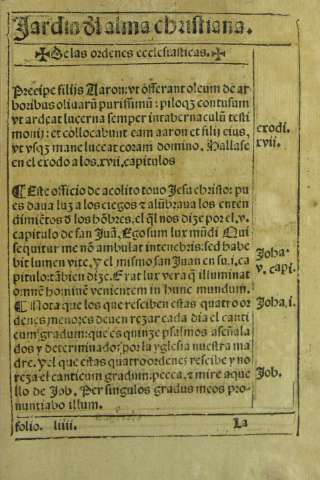 Jardin d'l alma christiana.
✠De las ordenes ecclesiasticas.✠
Precipe filijs Aaron: vt offerant oleum de ar
boribus oliuarũ purissimũ: piloq3 contusum
vt ardeat lucerna semper in tabernaculũ testi
monij: et collocabint eam aaron et filij eius,
vt vsq3 mane luceat coram domino. Hallase
en el exodo a los. xvij. capitulos
exodi.
xvij.
¶Este officio de acolito touo Jesu christo: pu
es daua luz a los ciegos z alũbraua los enten
dimiẽtos d'los hõbres. el q̃l nos dize por el. v.
capitulo de san Juã, Ego sum lux mũdi Qui
sequitur me nõ ambulat in tenebris: sed habe
bit lumen vite, y el mismo san Juan en su. i. ca
pitulo: tãbien dize. Erat lux vera q̃ illuminat
omnẽ hominẽ venientem in hunc mundum.
Joha.
v. capi.
¶Nota que los que resciben estas quatro or
denes menores deuen rezar cada dia el canti
cum gradum: que es quinze psalmos aseñala
dos y determinados por la yglesia nuestra ma
dre. y el que estas quatro ordenes rescibe y no
reza el canticum gradum: pecca. z mire aque
llo de Job. Per singulos gradus meos pro
nuntiabo illum.
Joha. i.
Job.
folio. iiij.
La